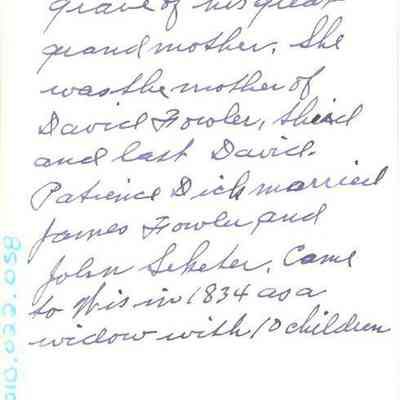 grave of his great
grandmother. She
was the mother of
David Fowler, third
and last David.
Patience Dick married
James Fowler and
John Seketer. Came
to Wis in 1834 as a
widow with 10 children
010.022.058